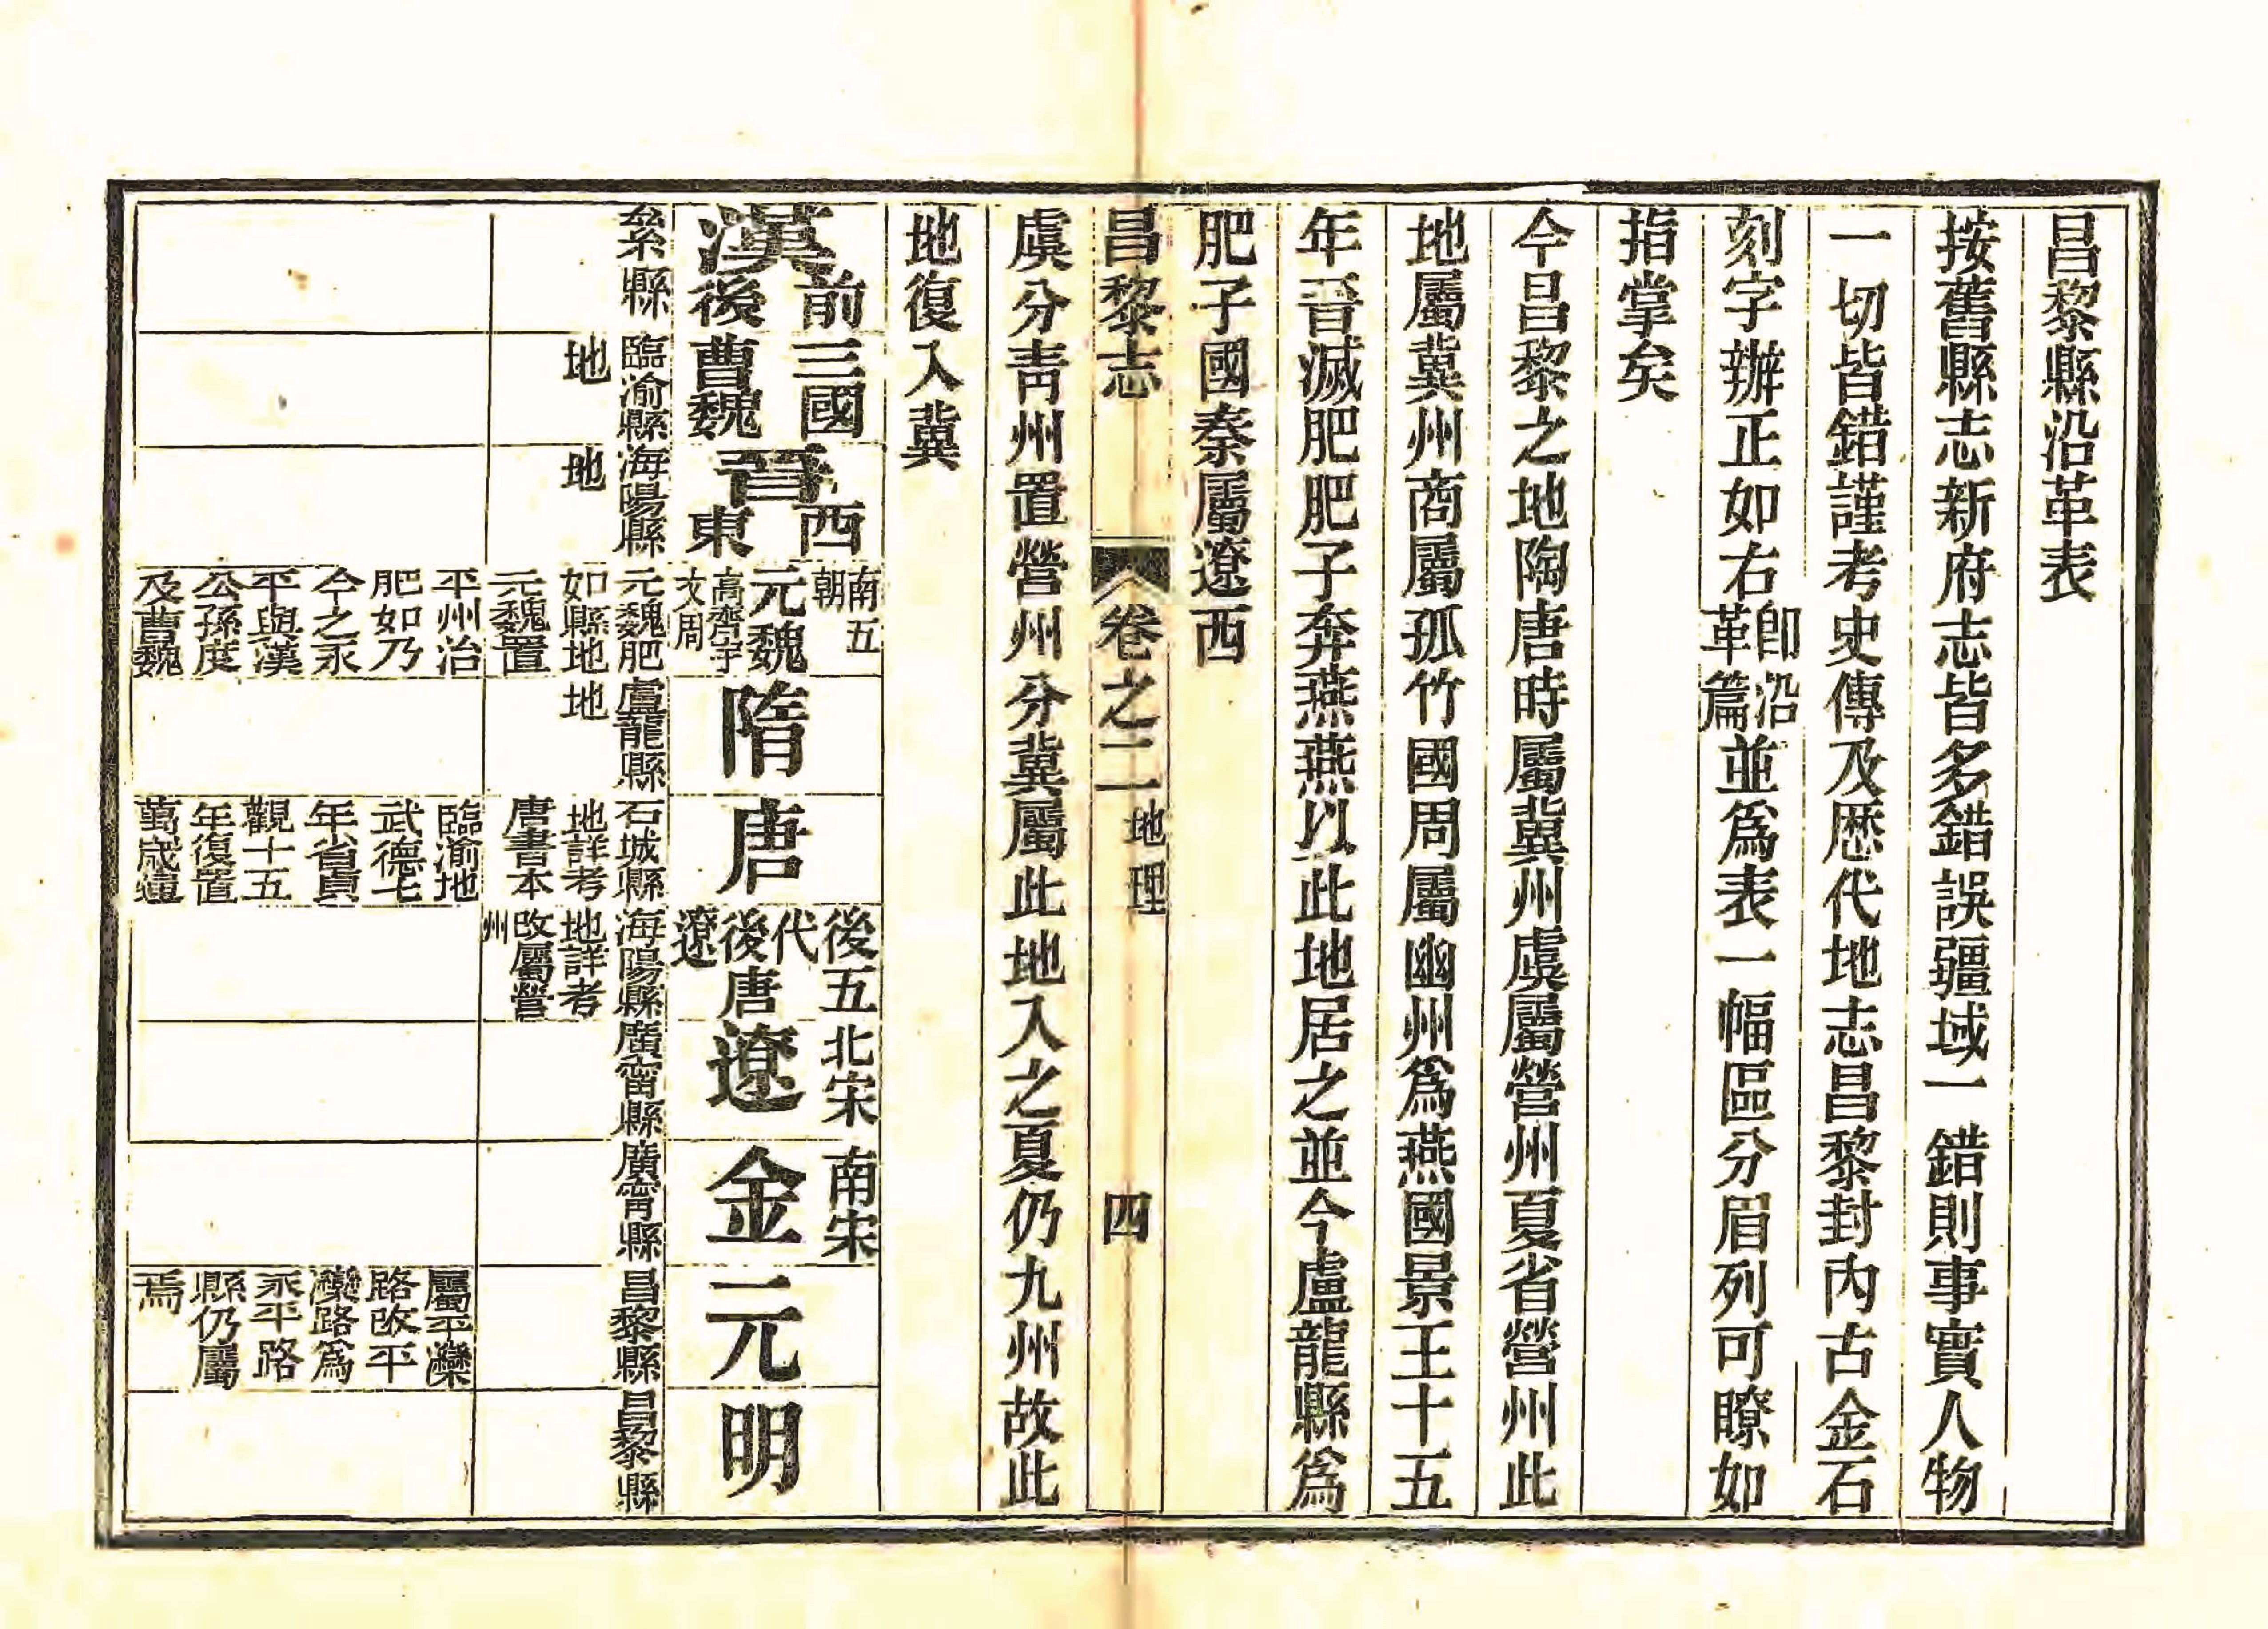 昌黎縣沿革表
按舊縣志新府志皆多錯誤疆域一錯則事實人物
一切皆錯謹考史傳及歷代地志昌黎封內古金石
刻字辦正如右卽沿革篇並爲表一幅區分眉列可瞭如
指掌矣
今昌黎之地陶唐時屬冀州虞屬營州夏省營州此
地屬冀州商屬孤竹國周屬幽州爲燕國景王十五
年晉滅肥肥子奔燕燕以此地居之並今盧龍縣爲
肥子國秦屬遼西
昌黎志 卷之二 地理 四
虞分靑州置營州分冀屬此地入之夏仍九州故此
地復入冀
漢 前後
三國 曹魏
晉 西東
南五朝 元魏 高齊宇文周
隋
唐
後五代 後唐 遼
北宋 遼
南宋 金
元
明
絫縣
臨渝縣地
海陽縣地
元魏肥如縣地元魏置
平州治肥如乃今之永平與漢公孫度及曹魏
盧龍縣地
石城縣地詳考唐書本
臨渝地武德七年省貞觀十五年復置萬歲通
海陽縣地詳考改屬營州
廣甯縣
廣甯縣
昌黎縣
屬平灤路改平灤路爲永平路縣仍屬焉
昌黎縣